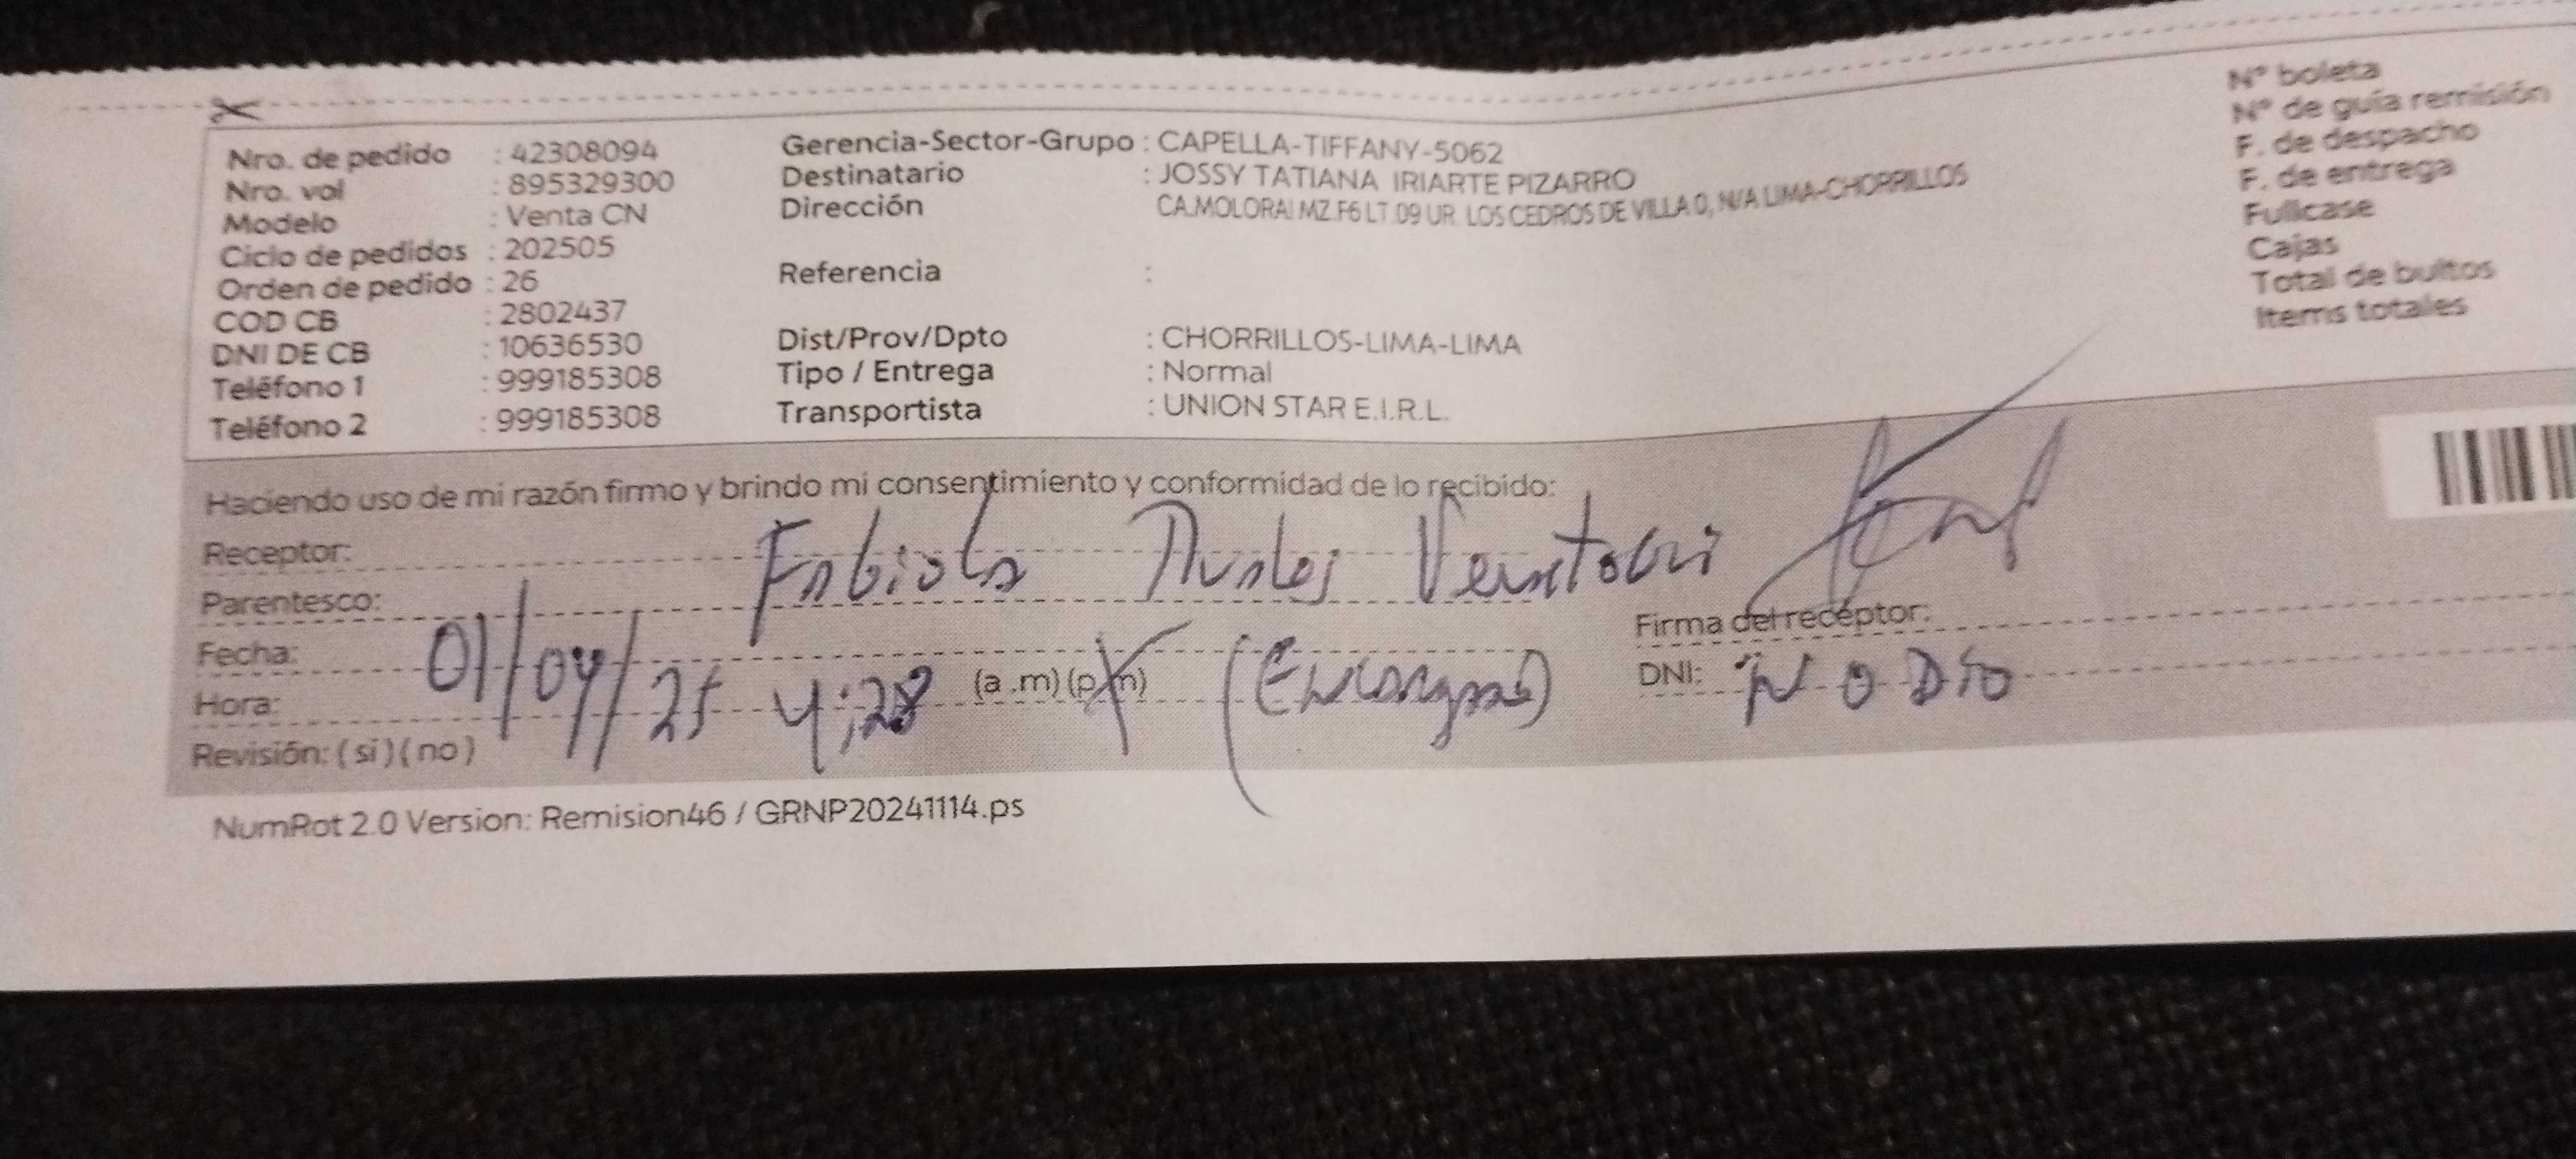 Nro. de pedido : 42308094
Nro. vol : 895329300
Modelo : Venta CN
Ciclo de pedidos : 202505
Orden de pedido : 26
COD CB : 2802437
DNI DE CB : 10636530
Teléfono 1 : 999185308
Teléfono 2 : 999185308
Gerencia-Sector-Grupo : CAPELLA-TIFFANY-5062
Destinatario : JOSSY TATIANA IRIARTE PIZARRO
Dirección CA.MOLORAI MZ.F6 LT.09 UR. LOS CEDROS DE VILLA 0, N/A LIMA-CHORRILLOS
Referencia :
Dist/Prov/Dpto : CHORRILLOS-LIMA-LIMA
Tipo / Entrega : Normal
Transportista : UNION STAR E.I.R.L.
N° boleta
N° de guía remisión
F. de despacho
F. de entrega
Fullcase
Cajas
Total de bultos
Items totales
Haciendo uso de mi razón firmo y brindo mi consentimiento y conformidad de lo recibido:
Receptor: Fabiola
Parentesco:
Fecha: 01/04/25
Hora: 4:28 (a .m) (p.m)
Revisión: ( si ) ( no )
Firma del receptor:
DNI: NO DIO
NumRot 2.0 Version: Remision46 / GRNP20241114.ps